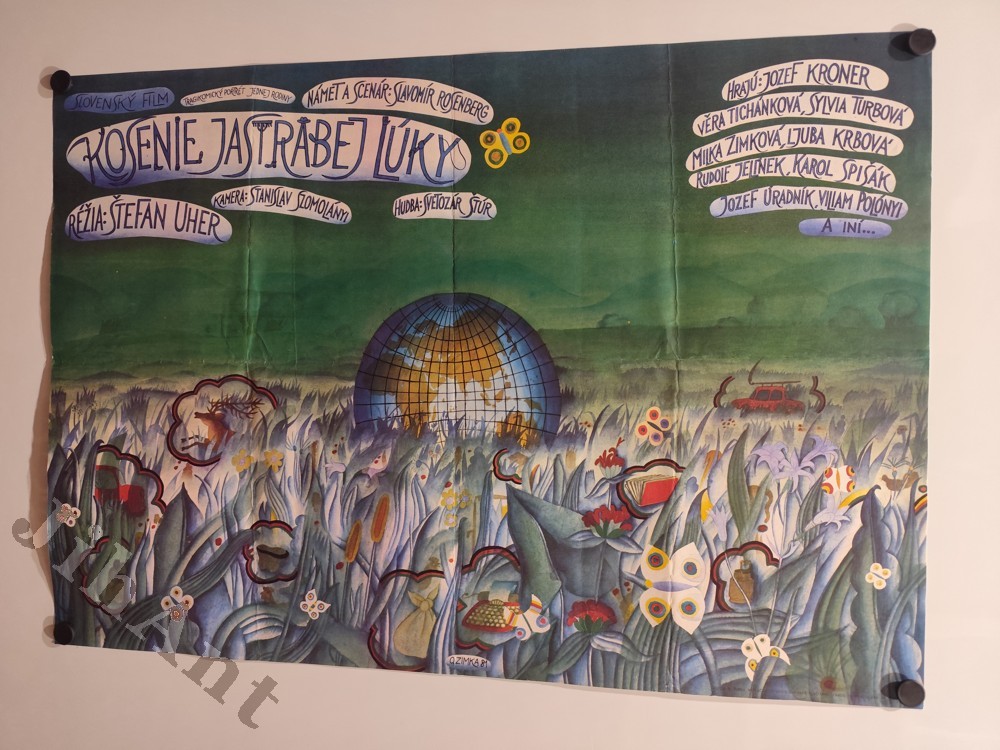 SLOVENSKÝ FILM
TRAGIKOMICKÝ PORTRÉT JEDNEJ RODINY
NÁMET A SCENÁR: SLAVOMÍR ROSENBERG
KOSENIE JASTRABEJ LÚKY
RÉŽIA: ŠTEFAN UHER
KAMERA: STANISLAV SZOMOLÁNYI
HUDBA: SVETOZÁR ŠTÚR
HRAJÚ: JOZEF KRONER
VĚRA TICHÁNKOVÁ, SYLVIA TURBOVÁ
MILKA ZIMKOVÁ, ĽUBA KRBOVÁ
RUDOLF JELÍNEK, KAROL SPIŠÁK
JOZEF ÚRADNÍK, VILIAM POLÓNYI
A INÍ...
O.ZIMKA 81
JihAnt